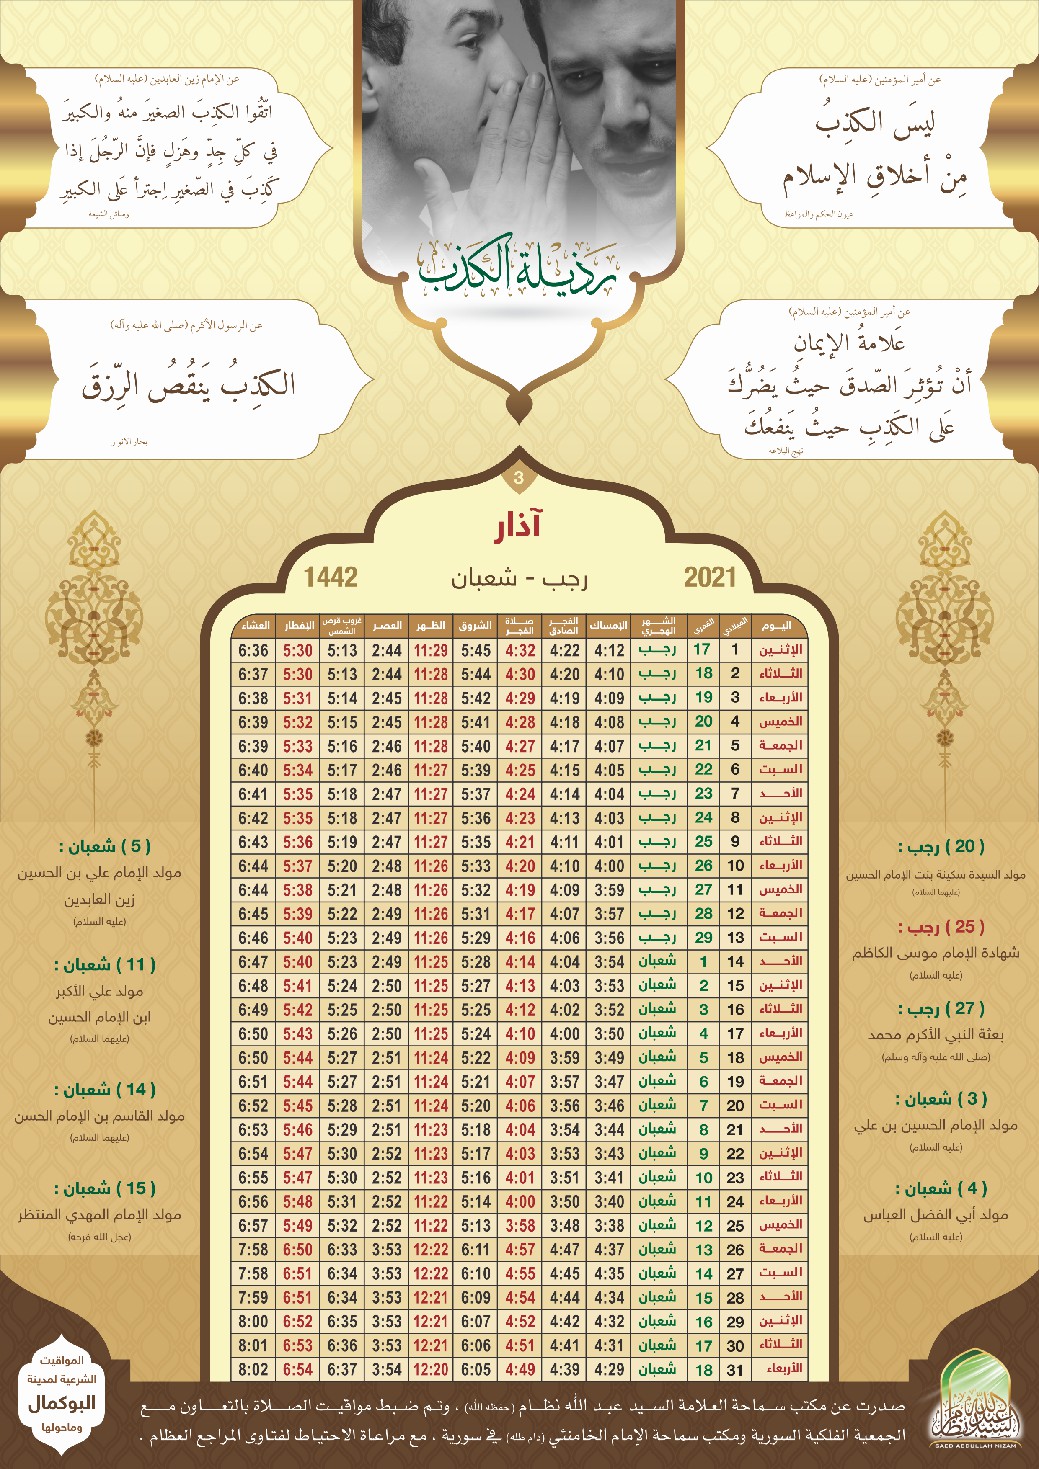 عن أمير المؤمنين (عليه السلام)
ليسَ الكذِبُ
مِنْ أخلاقِ الإسلام
عيون الحكم والمواعظ
عن الإمام زين العابدين (عليه السلام)
اتّقُوا الكذِبَ الصغيرَ منهُ والكبيرَ
في كلِّ جِدٍّ وهَزلٍ فإنَّ الرّجُلَ إذا
كَذِبَ في الصّغيرِ اِجترأ عَلى الكبيرِ
وسائل الشيعة
رذيلة الكذب
عن أمير المؤمنين (عليه السلام)
عَلامةُ الإيمانِ
أنْ تُؤثِرَ الصّدقَ حيثُ يَضُرُّكَ
عَلى الكَذِبِ حيثُ يَنفعُكَ
نهج البلاغة
عن الرسول الأكرم (صلى الله عليه وآله)
الكذِبُ يَنقُصُ الرِّزقَ
بحار الأنوار
3
آذار
2021 رجب - شعبان 1442
اليـوم الميلادي القمري الشـهر الهجري الإمساك الفجـر الصادق صـلاة الفجـر الشروق الظـهر العصـر غروب قرص الشمس الإفطار العشاء
الإثنـين 1 17 رجـب 4:12 4:22 4:32 5:45 11:29 2:44 5:13 5:30 6:36
الثـلاثاء 2 18 رجـب 4:10 4:20 4:30 5:44 11:28 2:44 5:13 5:30 6:37
الأربعاء 3 19 رجـب 4:09 4:19 4:29 5:42 11:28 2:45 5:14 5:31 6:38
الخميس 4 20 رجـب 4:08 4:18 4:28 5:41 11:28 2:45 5:15 5:32 6:39
الجمعـة 5 21 رجـب 4:07 4:17 4:27 5:40 11:28 2:46 5:16 5:33 6:39
السـبت 6 22 رجـب 4:05 4:15 4:25 5:39 11:27 2:46 5:17 5:34 6:40
الأحـد 7 23 رجـب 4:04 4:14 4:24 5:37 11:27 2:47 5:18 5:35 6:41
الإثنـين 8 24 رجـب 4:03 4:13 4:23 5:36 11:27 2:47 5:18 5:35 6:42
الثـلاثاء 9 25 رجـب 4:01 4:11 4:21 5:35 11:27 2:47 5:19 5:36 6:43
الأربعاء 10 26 رجـب 4:00 4:10 4:20 5:33 11:26 2:48 5:20 5:37 6:44
الخميس 11 27 رجـب 3:59 4:09 4:19 5:32 11:26 2:48 5:21 5:38 6:44
الجمعـة 12 28 رجـب 3:57 4:07 4:17 5:31 11:26 2:49 5:22 5:39 6:45
السـبت 13 29 رجـب 3:56 4:06 4:16 5:29 11:26 2:49 5:23 5:40 6:46
الأحـد 14 1 شعبان 3:54 4:04 4:14 5:28 11:25 2:49 5:23 5:40 6:47
الإثنـين 15 2 شعبان 3:53 4:03 4:13 5:27 11:25 2:50 5:24 5:41 6:48
الثـلاثاء 16 3 شعبان 3:52 4:02 4:12 5:25 11:25 2:50 5:25 5:42 6:49
الأربعاء 17 4 شعبان 3:50 4:00 4:10 5:24 11:25 2:50 5:26 5:43 6:50
الخميس 18 5 شعبان 3:49 3:59 4:09 5:22 11:24 2:51 5:27 5:44 6:50
الجمعـة 19 6 شعبان 3:47 3:57 4:07 5:21 11:24 2:51 5:27 5:44 6:51
السـبت 20 7 شعبان 3:46 3:56 4:06 5:20 11:24 2:51 5:28 5:45 6:52
الأحـد 21 8 شعبان 3:44 3:54 4:04 5:18 11:23 2:51 5:29 5:46 6:53
الإثنـين 22 9 شعبان 3:43 3:53 4:03 5:17 11:23 2:52 5:30 5:47 6:54
الثـلاثاء 23 10 شعبان 3:41 3:51 4:01 5:16 11:23 2:52 5:30 5:47 6:55
الأربعاء 24 11 شعبان 3:40 3:50 4:00 5:14 11:22 2:52 5:31 5:48 6:56
الخميس 25 12 شعبان 3:38 3:48 3:58 5:13 11:22 2:52 5:32 5:49 6:57
الجمعـة 26 13 شعبان 4:37 4:47 4:57 6:11 12:22 3:53 6:33 6:50 7:58
السـبت 27 14 شعبان 4:35 4:45 4:55 6:10 12:22 3:53 6:34 6:51 7:58
الأحـد 28 15 شعبان 4:34 4:44 4:54 6:09 12:21 3:53 6:34 6:51 7:59
الإثنـين 29 16 شعبان 4:32 4:42 4:52 6:07 12:21 3:53 6:35 6:52 8:00
الثـلاثاء 30 17 شعبان 4:31 4:41 4:51 6:06 12:21 3:53 6:36 6:53 8:01
الأربعاء 31 18 شعبان 4:29 4:39 4:49 6:05 12:20 3:54 6:37 6:54 8:02
( 20 ) رجب :
مولد السيدة سكينة بنت الإمام الحسين
(عليهما السلام)
( 25 ) رجب :
شهادة الإمام موسى الكاظم
(عليه السلام)
( 27 ) رجب :
بعثة النبي الأكرم محمد
(صلى الله عليه وآله وسلم)
( 3 ) شعبان :
مولد الإمام الحسين بن علي
(عليه السلام)
( 4 ) شعبان :
مولد أبي الفضل العباس
(عليه السلام)
( 5 ) شعبان :
مولد الإمام علي بن الحسين
زين العابدين
(عليه السلام)
( 11 ) شعبان :
مولد علي الأكبر
ابن الإمام الحسين
(عليهما السلام)
( 14 ) شعبان :
مولد القاسم بن الإمام الحسن
(عليهما السلام)
( 15 ) شعبان :
مولد الإمام المهدي المنتظر
(عجل الله فرجه)
المواقيت
الشرعية لمدينة
البوكمال
وماحولها
صدرت عن مكتب سماحة العلامة السيد عبد الله نظـام (حفظه الله) ، وتم ضبـط مواقيـت الصـلاة بالتعـاون مـع
الجمعية الفلكية السورية ومكتب سماحة الإمام الخامنئي (دام ظله) في سورية ، مع مراعاة الاحتياط لفتاوى المراجع العظام .
السيد عبد الله نظام
SAED ABDULLAH NIZAM